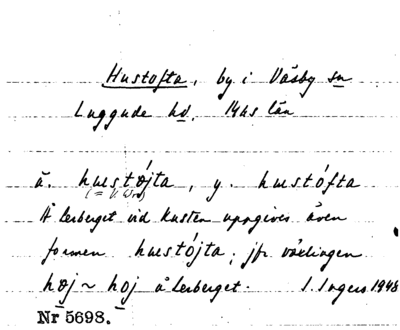 Hustofta, by i Väsby sn
Luggude hd. 14hs län
ä. hustǿjta, y. hustófta
(= v. ord)
Å Lerberget vid kusten uppgives även
formen hustójta; jfr växlingen
høj ~ hoj å Lerberget. I. Ingers 1948
Nr 5698.